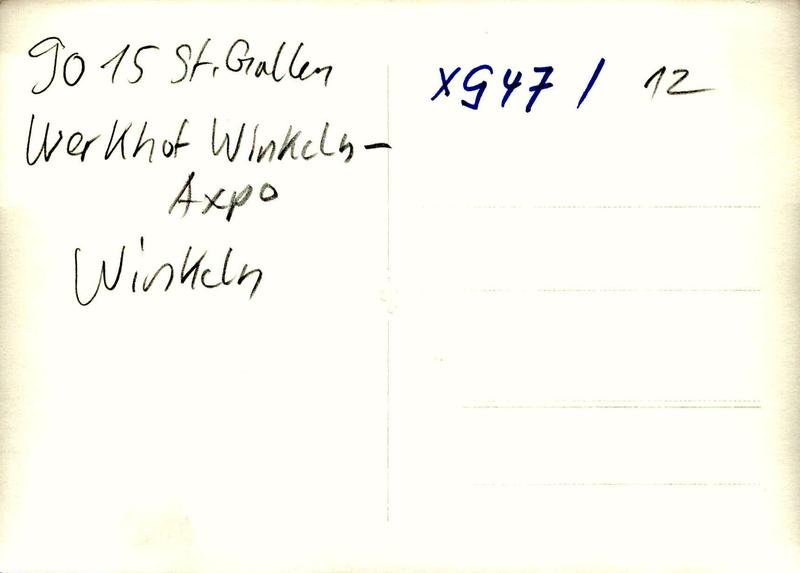 9015 St. Gallen
Werkhof Winkeln-
Axpo
Winkeln
XG47 / 12